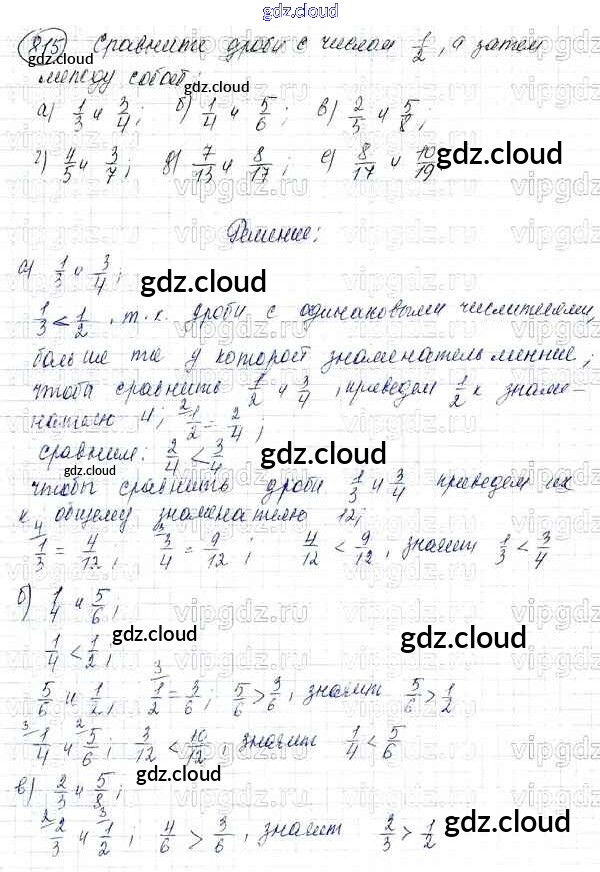 gdz.cloud
815) Сравните дроби с числом 1/2, а затем
между собой:
а) 1/3 и 3/4; б) 1/4 и 5/6; в) 2/3 и 5/8;
г) 4/5 и 3/7; д) 7/13 и 8/17; е) 8/17 и 10/19
Решение:
а) 1/3 и 3/4;
1/3 < 1/2, т.к. дроби с одинаковыми числителями,
больше та у которой знаменатель меньше;
чтобы сравнить 1/2 и 3/4, приведем 1/2 к знаме-
нателю 4; 1/2 = 2/4;
сравним: 2/4 < 3/4
чтобы сравнить дроби 1/3 и 3/4 приведем их
к общему знаменателю 12;
1/3 = 4/12; 3/4 = 9/12; 4/12 < 9/12, значит 1/3 < 3/4
б) 1/4 и 5/6;
1/4 < 1/2;
5/6 и 1/2, 1/2 = 3/6; 5/6 > 3/6, значит 5/6 > 1/2
1/4 и 5/6; 3/12 < 10/12, значит 1/4 < 5/6
в) 2/3 и 5/8;
2/3 и 1/2; 4/6 > 3/6, значит 2/3 > 1/2
gdz.cloud